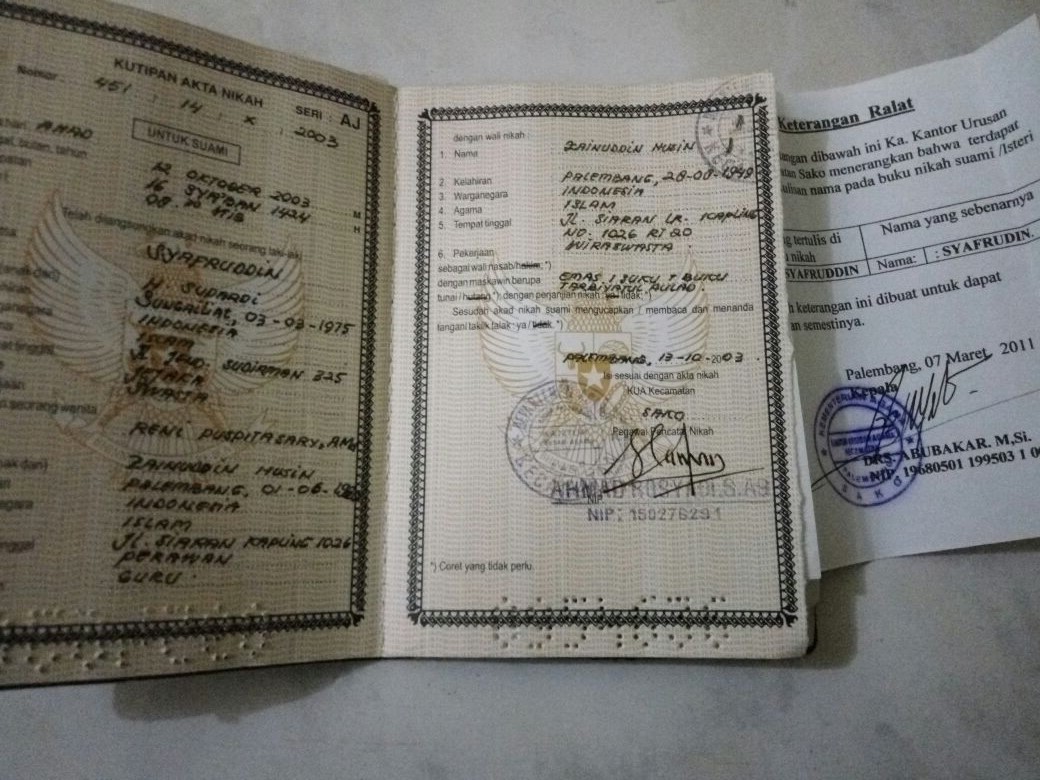 KUTIPAN AKTA NIKAH
Nomor : 451 : 14 : X : 2003
SERI : AJ
UNTUK SUAMI
AHAD
12 OKTOBER 2003 M
16 SYA'BAN 1424 H
08. WIB
Telah dilangsungkan akad nikah seorang laki-laki
SYAFRUDDIN
H SUPARDI
03-03-1975
INDONESIA
ISLAM
JL. JEND. SUDIRMAN 325
SWASTA
seorang wanita
RENI PUSPITASARY, AMd
ZAINUDDIN MUSIN
PALEMBANG, 01-06-19
INDONESIA
ISLAM
JL. SIARAN KAPLING 1026
PERAWAN
GURU
dengan wali nikah :
1. Nama ZAINUDDIN MUSIN
2. Kelahiran PALEMBANG, 28-08-1949
3. Warganegara INDONESIA
4. Agama ISLAM
5. Tempat tinggal JL. SIARAN LR. KAPLING
NO. 1026 RT 20
6. Pekerjaan WIRASWASTA
sebagai wali nasab/hakim; *)
dengan maskawin berupa EMAS 1 SUKU + BUKU
TARBIYATUL AULAD.
tunai / hutang *); dengan perjanjian nikah : ya / tidak; *)
Sesudah akad nikah suami mengucapkan / membaca dan menanda
tangani taklik talak : ya / tidak. *)
PALEMBANG, 13-10-2003.
Isi sesuai dengan akta nikah
KUA Kecamatan
SAKO
Pegawai Pencatat Nikah
AHMAD ROSYIDI.S.AG
NIP: 150276291
*) Coret yang tidak perlu.
Keterangan Ralat
dibawah ini Ka. Kantor Urusan
Sako menerangkan bahwa terdapat
nama pada buku nikah suami /Isteri
tertulis di
nikah
Nama yang sebenarnya
SYAFRUDDIN
Nama: : SYAFRUDIN.
keterangan ini dibuat untuk dapat
semestinya.
Palembang, 07 Maret 2011
Kepala
DRS. ABUBAKAR. M,Si.
NIP 19680501 199503 1 00